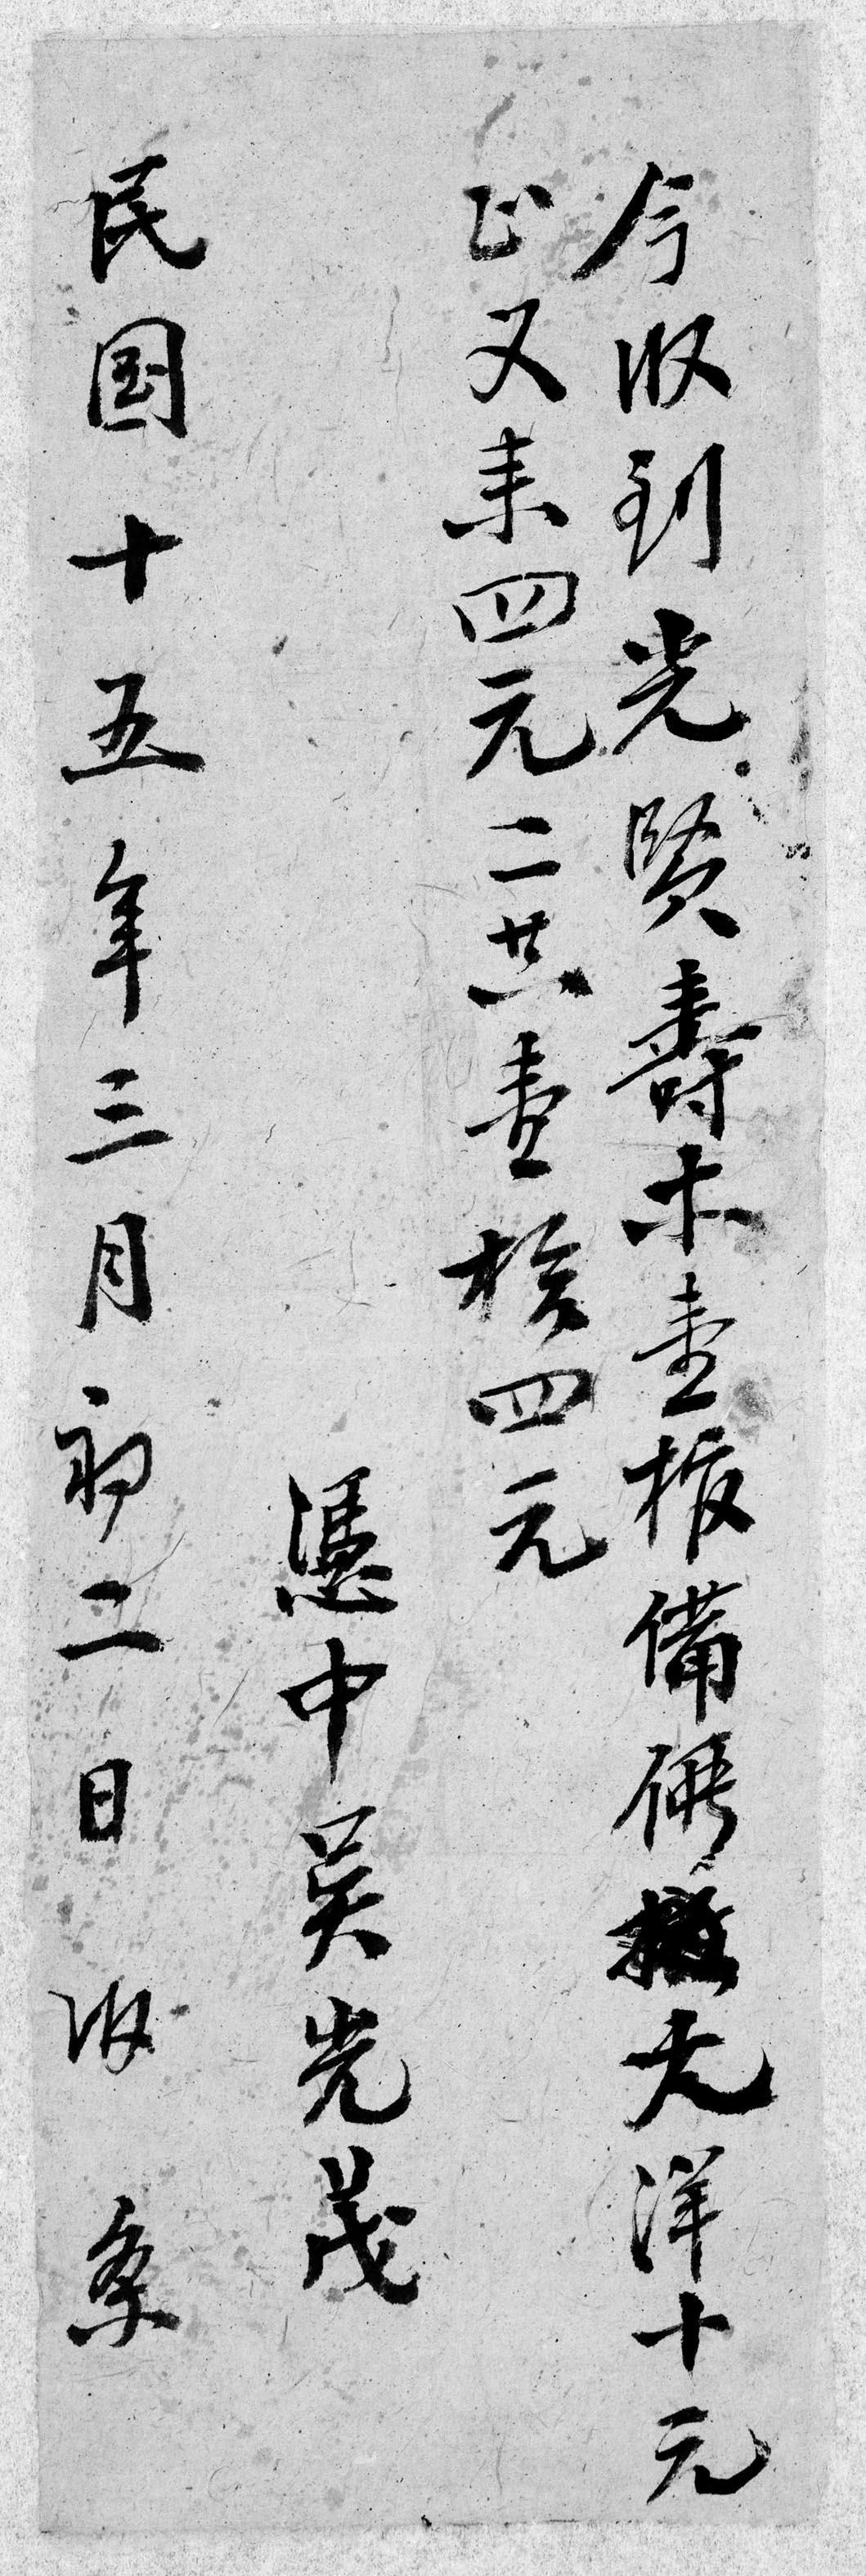 今收到光賢壽木壹板備價大洋十元
正又来四元二共壹拾四元
憑中吴光茂
民国十五年三月初二日收条